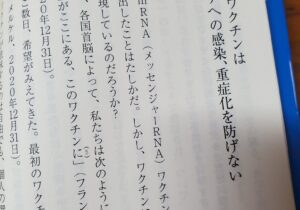 ワクチンは
への感染、重症化を防げない
mRNA(メッセンジャーRNA)ワクチ
出したことはたしかだ。しかし、ワクチン
現しているのだろうか?
、各国首脳によって、私たちは次のように
がここにある、このワクチンに」(フラン
年12月31日)。
こ数日、希望がみえてきた。最初のワク
メルケル、2020年12月31日)。